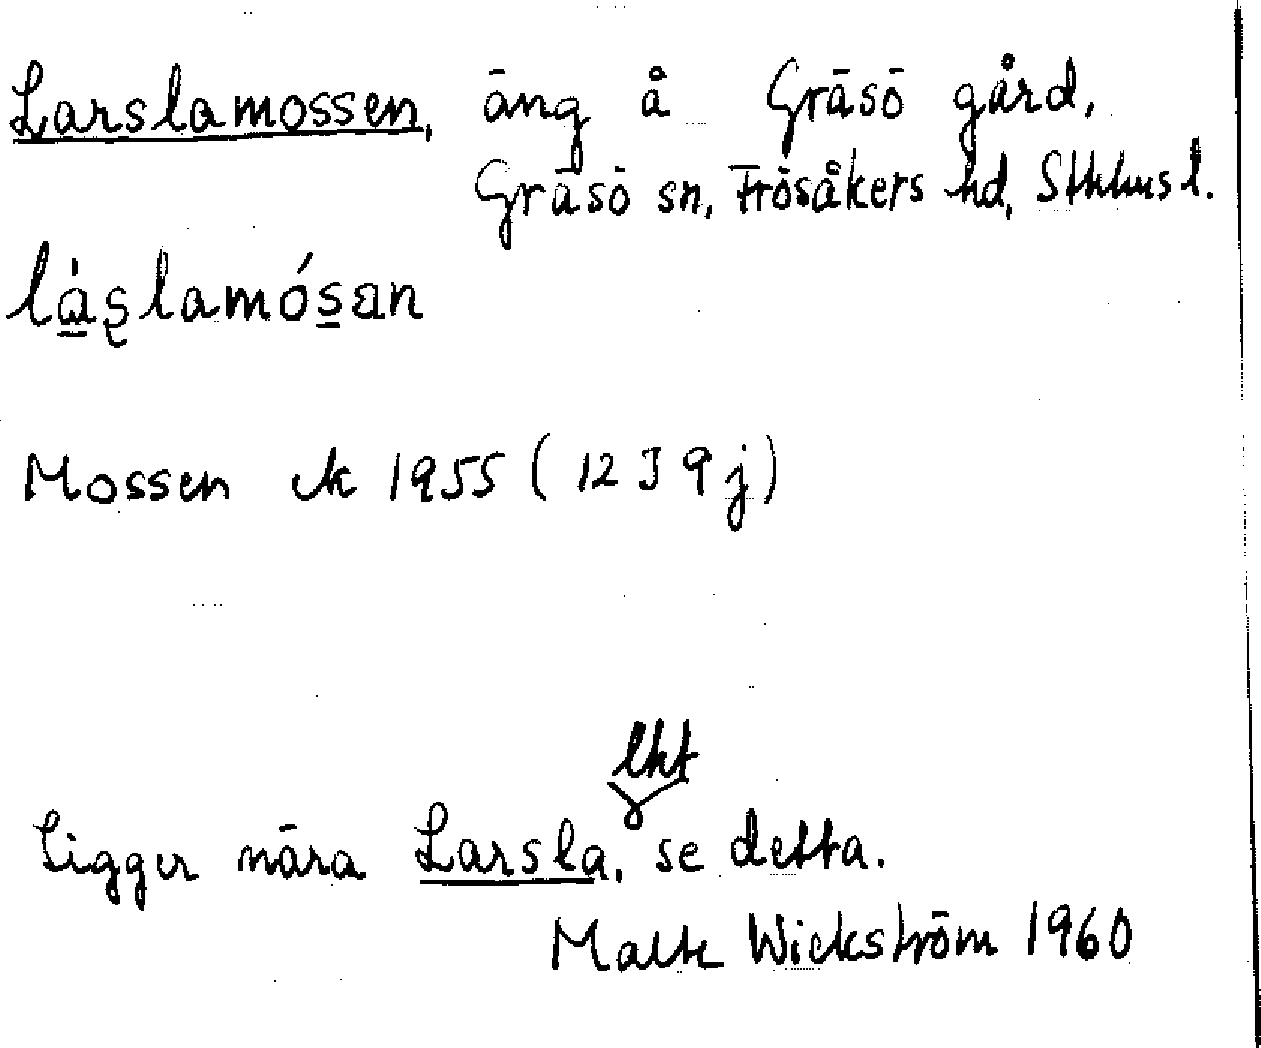 Larslamossen, äng å Gräsö gård,
Gräsö sn, Frösåkers hd, Sthlms l.
là̱s̨lamós̱ən
Mossen ek 1955 (12 I 9 j)
lht
Ligger nära Larsla, se detta.
Malte Wickström 1960